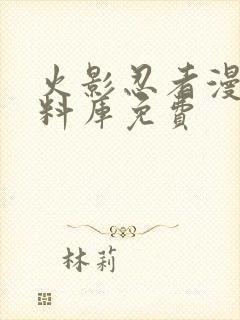 火影忍者漫
料库免費
林莉